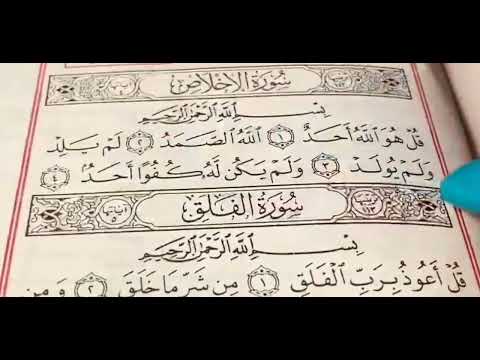 سُورَةُ الإِخْلَاصِ
بِسْمِ ٱللَّهِ ٱلرَّحْمَٰنِ ٱلرَّحِيمِ
قُلْ هُوَ ٱللَّهُ أَحَدٌ ١ ٱللَّهُ ٱلصَّمَدُ ٢ لَمْ يَلِدْ
وَلَمْ يُولَدْ ٣ وَلَمْ يَكُن لَّهُۥ كُفُوًا أَحَدٌۢ ٤
سُورَةُ الفَلَقِ
بِسْمِ ٱللَّهِ ٱلرَّحْمَٰنِ ٱلرَّحِيمِ
قُلْ أَعُوذُ بِرَبِّ ٱلْفَلَقِ ١ مِن شَرِّ مَا خَلَقَ ٢ وَمِن